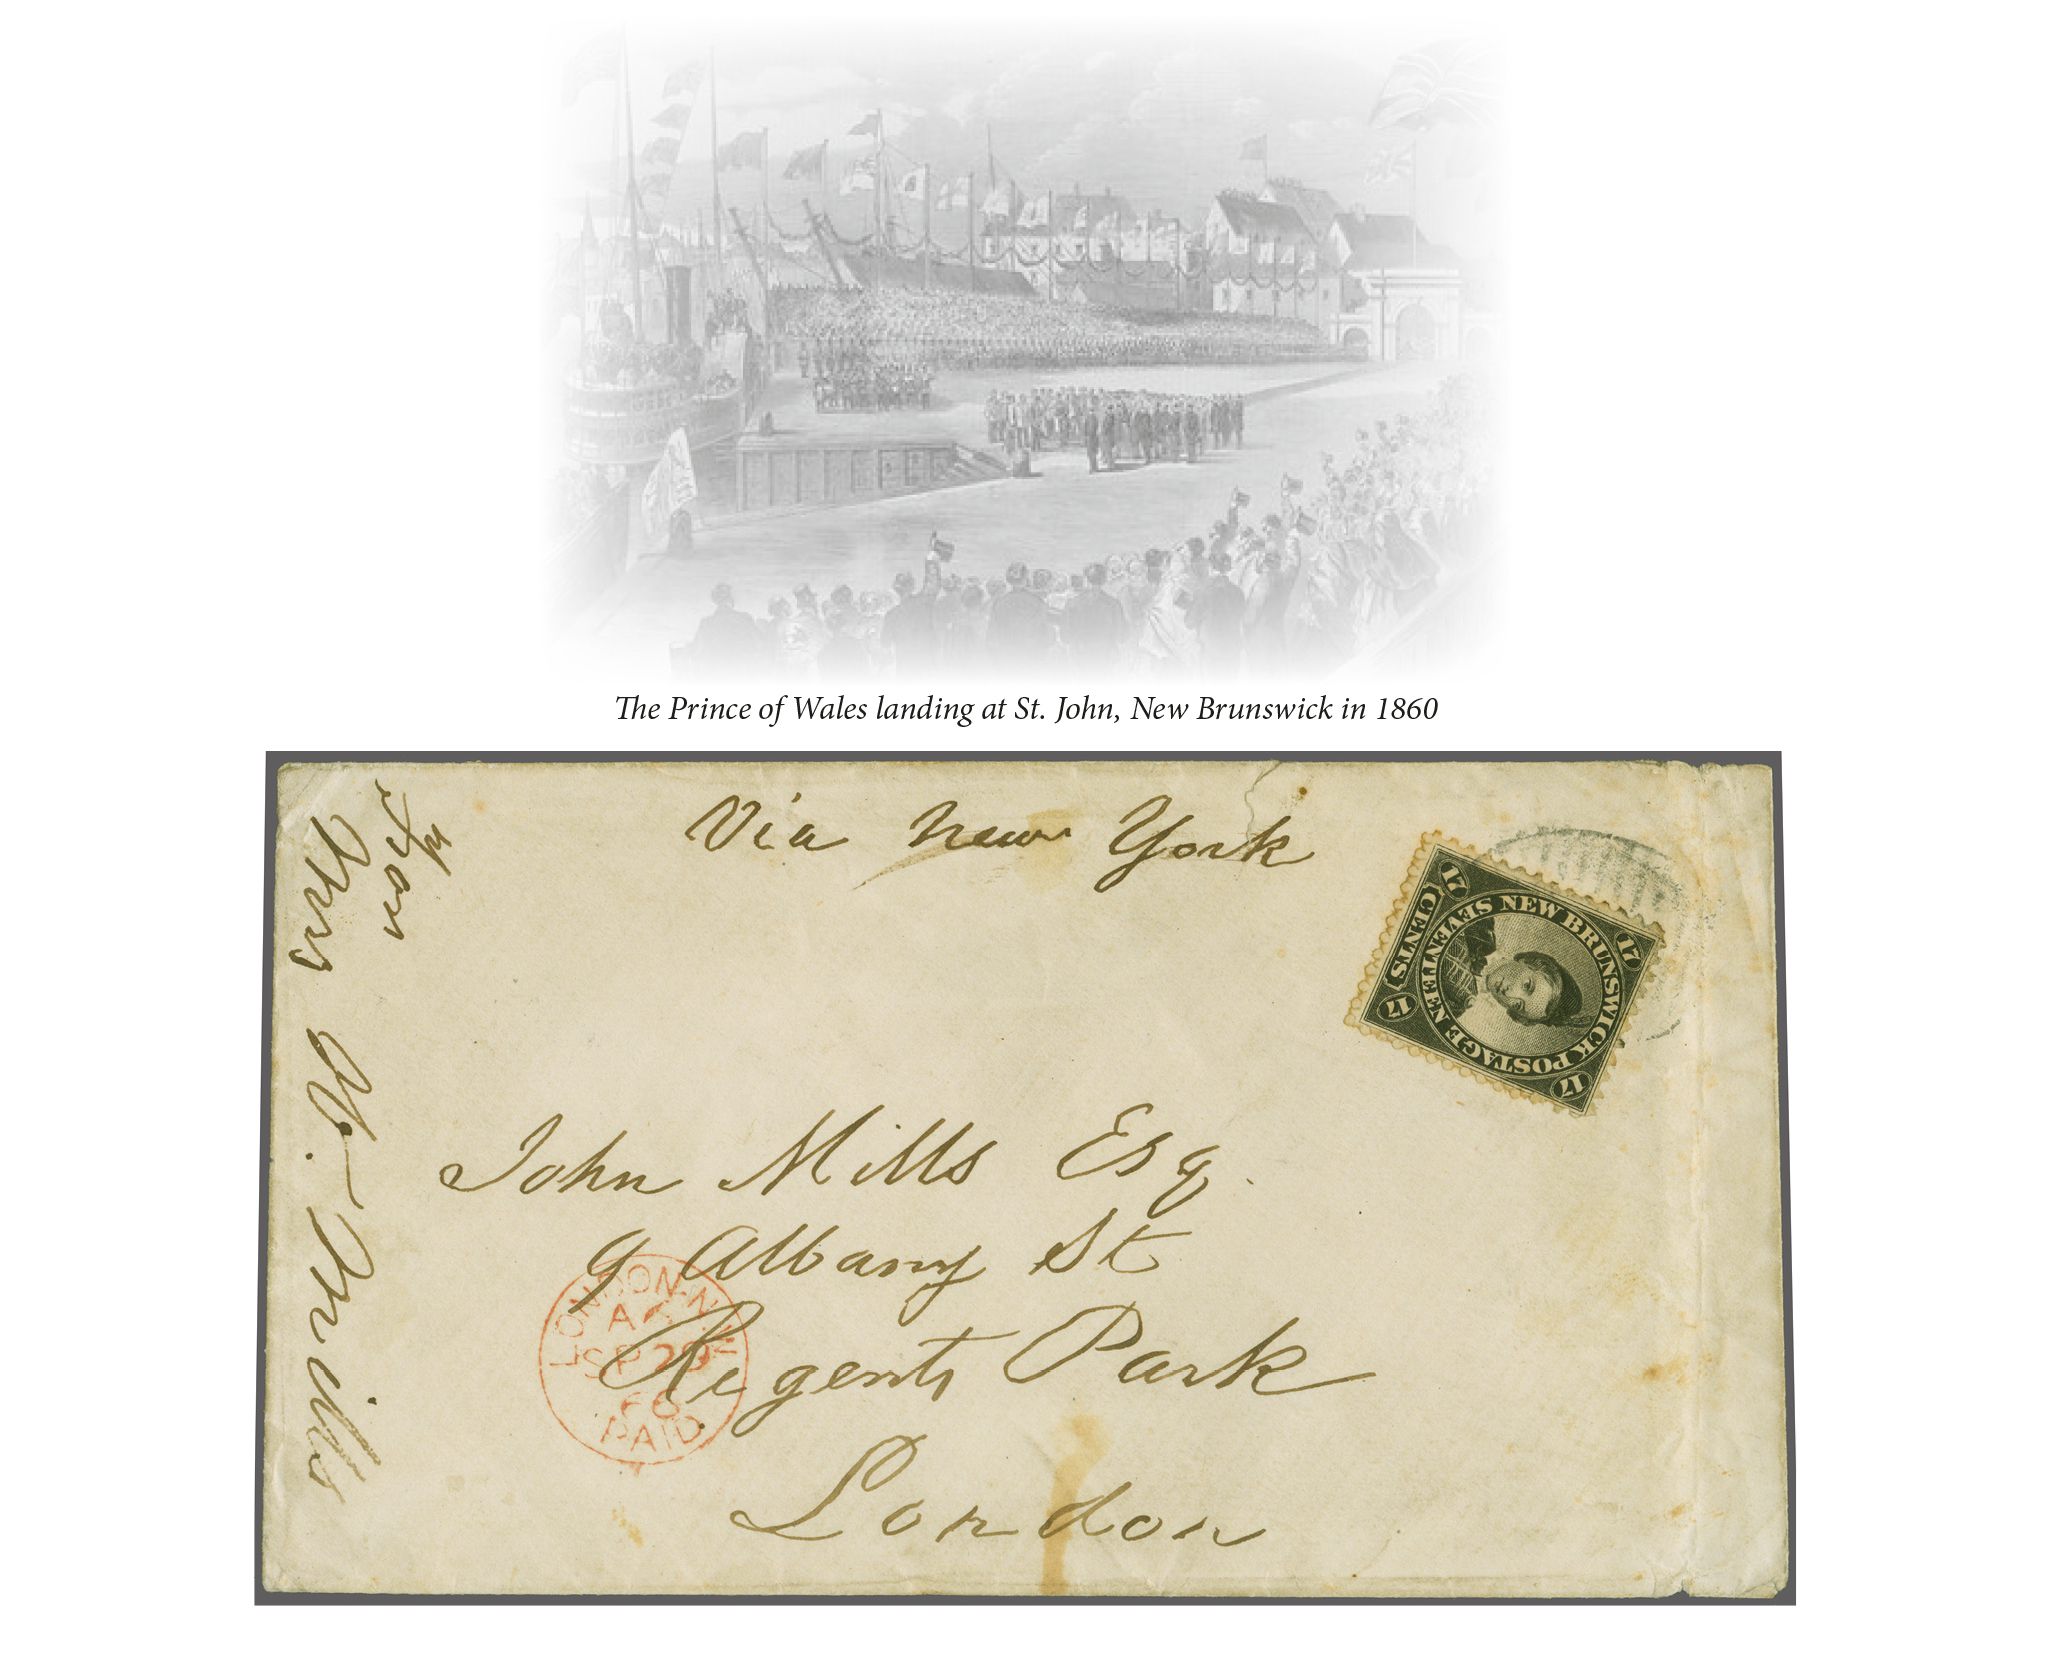 The Prince of Wales landing at St. John, New Brunswick in 1860
Via New York
From
Mrs W. Mills
NEW BRUNSWICK POSTAGE
SEVENTEEN
CENTS
17
17
17
17
John Mills Esq.
9 Albany St
Regents Park
London
LONDON-N.W
SP 29
PAID